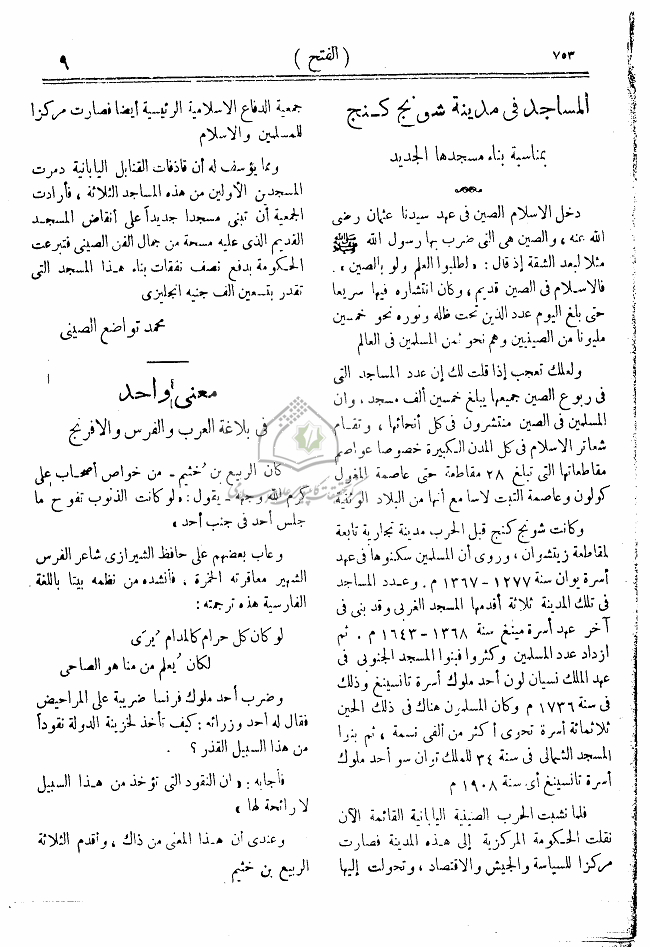 ٧٥٣
( الفتح )
٩
المساجد فى مدينة شونج كنج
بمناسبة بناء مسجدها الجديد
دخل الاسلام الصين فى عهد سيدنا عثمان رضى
الله عنه ، والصين هى التى ضرب بها رسول الله ﷺ
مثلا لبعد الشقة إذ قال : « اطلبوا العلم ولو بالصين » .
فالاسلام فى الصين قديم ، وكان انتشاره فيها سريعا
حتى بلغ اليوم عدد الذين تحت ظله ونوره نحو خمسين
مليونا من الصينيين وهم نحو ثمن المسلمين فى العالم
ولعلك تعجب إذا قلت لك إن عدد المساجد التى
فى ربوع الصين جميعها يبلغ خمسين ألف مسجد ، وان
المسلمين فى الصين منتشرون فى كل أنحائها ، وتقام
شعائر الاسلام فى كل المدن الكبيرة خصوصا عواصم
مقاطعاتها التى تبلغ ٢٨ مقاطعة حتى عاصمة المغول
كولون وعاصمة التبت لاسا مع أنها من البلاد الوثنية
وكانت شونج كنج قبل الحرب مدينة تجارية تابعة
لمقاطعة زيتشوان ، وروى أن المسلمين سكنوها فى عهد
أسرة يوان سنة ١٢٧٧ - ١٣٦٧ م . وعدد المساجد
فى تلك المدينة ثلاثة أقدمها المسجد الغربى وقد بنى فى
آخر عهد أسرة مينغ سنة ١٣٦٨ - ١٦٤٣ م . ثم
ازداد عدد المسلمين وكثروا فبنوا المسجد الجنوبى فى
عهد الملك نسيان لون أحد ملوك أسرة تانسينغ وذلك
فى سنة ١٧٣٦ م وكان المسلمون هناك فى ذلك الحين
ثلاثمائة أسرة تحوى أكثر من ألفى نسمة ، ثم بنوا
المسجد الشمالى فى سنة ٣٤ للملك توان سو أحد ملوك
أسرة تانسينغ أى سنة ١٩٠٨ م
فلما نشبت الحرب الصينية اليابانية القائمة الآن
نقلت الحكومة المركزية إلى هذه المدينة فصارت
مركزا للسياسة والجيش والاقتصاد ، وتحولت إليها
جمعية الدفاع الاسلامية الرئيسية أيضا فصارت مركزا
للمسلمين والاسلام
ومما يؤسف له أن قاذفات القنابل اليابانية دمرت
المسجدين الأولين من هذه المساجد الثلاثة ، فأرادت
الجمعية أن تبنى مسجدا جديداً على أنقاض المسجد
القديم الذى عليه مسحة من جمال الفن الصينى فتبرعت
الحكومة بدفع نصف نفقات بناء هذا المسجد التى
تقدر بتسعين الف جنيه انجليزى
محمد تواضع الصينى
معنى واحد
فى بلاغة العرب والفرس والافرنج
كان الربيع بن خثيم - من خواص أصحاب على
كرم الله وجهه - يقول : « لو كانت الذنوب تفوح ما
جلس أحد فى جنب أحد »
وعاب بعضهم على حافظ الشيرازى شاعر الفرس
الشهير معاقرته الخمرة ، فأنشده من نظمه بيتا باللغة
الفارسية هذه ترجمته :
لو كان كل حرام كالمدام يُرى
لكان يُعلم من منا هو الصاحى
وضرب أحد ملوك فرنسا ضريبة على المراحيض
فقال له أحد وزرائه : كيف تأخذ لخزينة الدولة نقوداً
من هذا السبيل القذر ؟ .
فأجابه : « ان النقود التى تؤخذ من هذا السبيل
لا رائحة لها »
وعندى أن هذا المعنى من ذاك ، وأقدم الثلاثة
الربيع بن خثيم